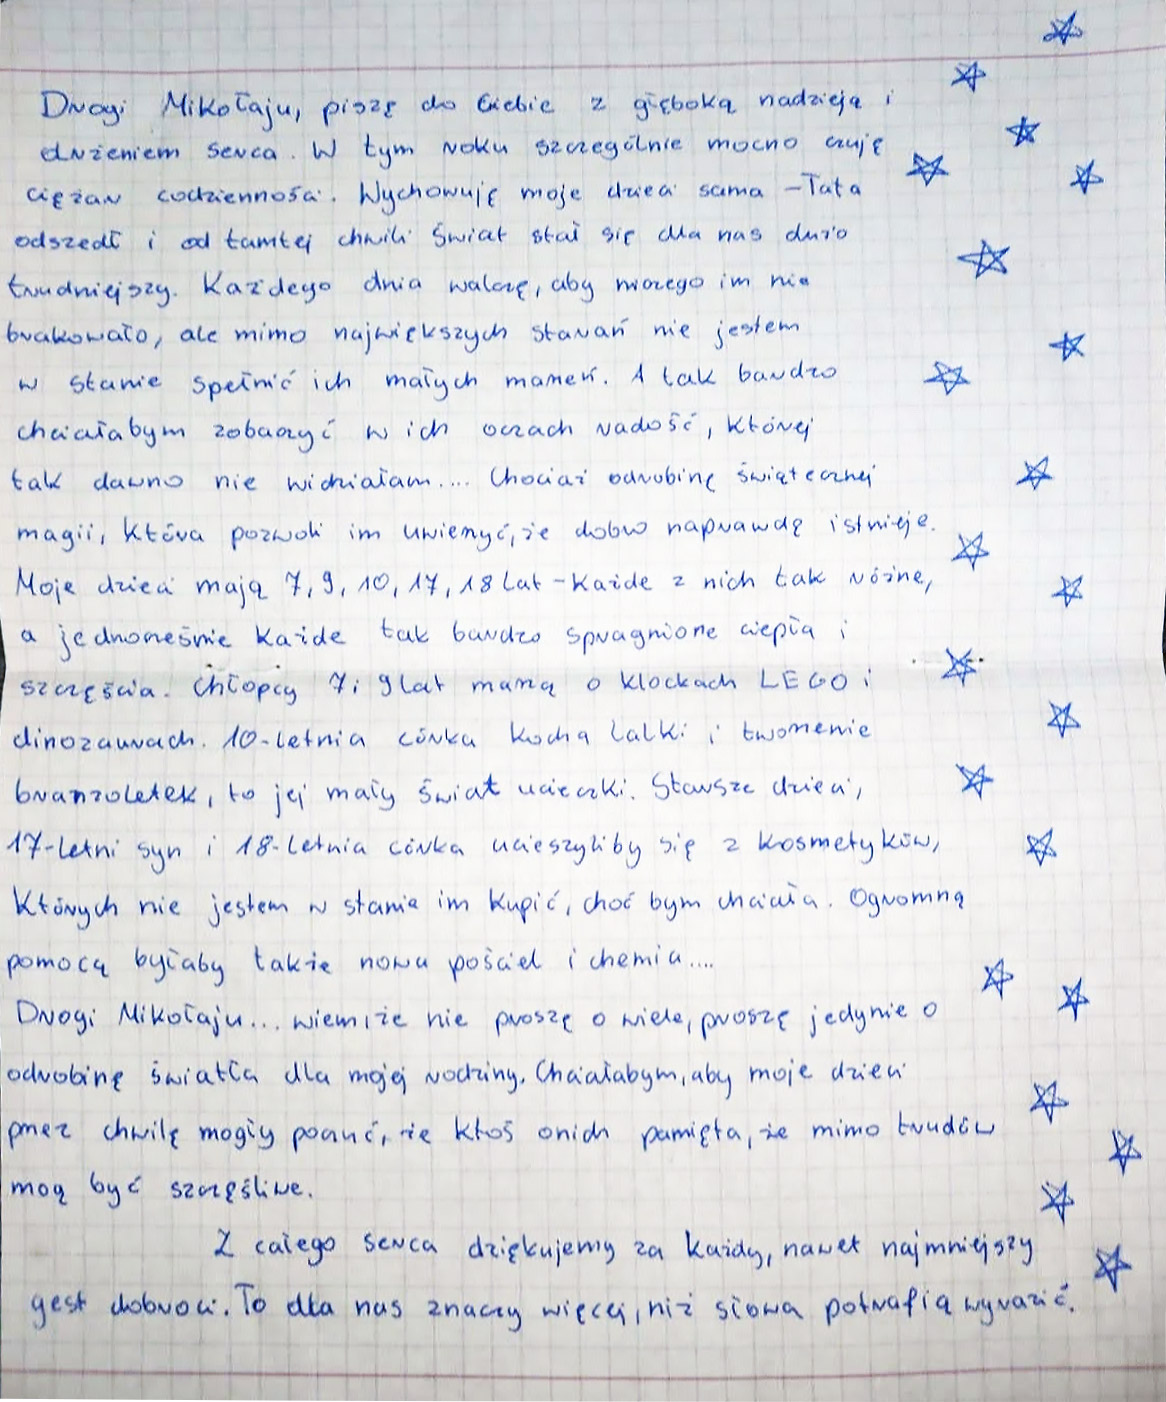 Drogi Mikołaju, piszę do Ciebie z głęboką nadzieją i
drżeniem serca. W tym roku szczególnie mocno czuję
ciężar codzienności. Wychowuję moje dzieci sama - Tata
odszedł i od tamtej chwili świat stał się dla nas dużo
trudniejszy. Każdego dnia walczę, aby niczego im nie
brakowało, ale mimo największych starań nie jestem
w stanie spełnić ich małych marzeń. A tak bardzo
chciałabym zobaczyć w ich oczach radość, której
tak dawno nie widziałam.... Chociaż odrobinę świątecznej
magii, która pozwoli im uwierzyć, że dobro naprawdę istnieje.
Moje dzieci mają 7, 9, 10, 17, 18 lat - każde z nich tak różne,
a jednocześnie każde tak bardzo spragnione ciepła i
szczęścia. Chłopcy 7 i 9 lat marzą o klockach LEGO i
dinozaurach. 10-letnia córka kocha lalki i tworzenie
branzoletek, to jej mały świat ucieczki. Starsze dzieci,
17-letni syn i 18-letnia córka ucieszyliby się z kosmetyków,
których nie jestem w stanie im kupić, choć bym chciała. Ogromną
pomocą byłaby także nowa pościel i chemia....
Drogi Mikołaju... wiem, że nie proszę o wiele, proszę jedynie o
odrobinę światła dla mojej rodziny. Chciałabym, aby moje dzieci
przez chwilę mogły poczuć, że ktoś o nich pamięta, że mimo trudów
mogą być szczęśliwe.
Z całego serca dziękujemy za każdy, nawet najmniejszy
gest dobroci. To dla nas znaczy więcej, niż słowa potrafią wyrazić.